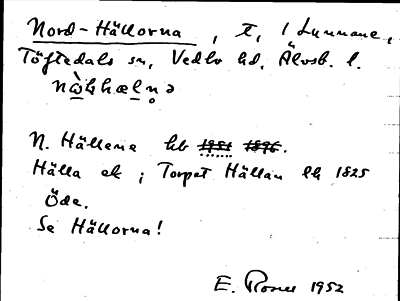 Nord-Hällorna, t, 1 Lunnane,
Töftedals sn, Vedbo hd, Älvsb. l.
N. Hällena hb 1951 1896.
Hälla ek; Torpet Hällan lk 1825
Öde.
Se Hällorna!
E. Rosell 1952